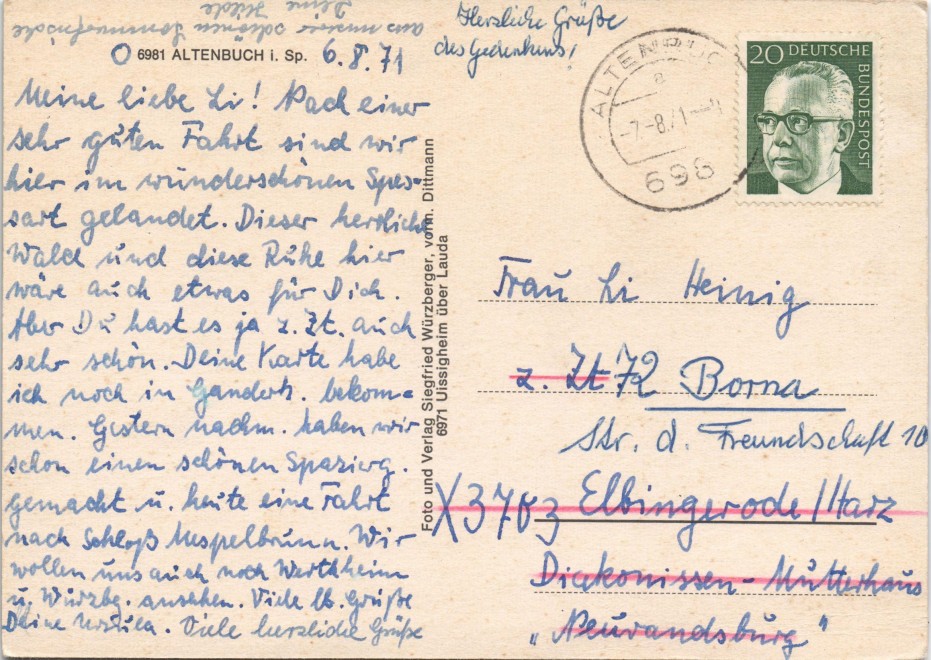 6981 ALTENBUCH i. Sp. 6.8.71
Meine liebe Li! Nach einer
sehr guten Fahrt sind wir
hier im wunderschönen Spes-
sart gelandet. Dieser herrliche
Wald und diese Ruhe hier
wäre auch etwas für Dich.
Aber Du hast es ja z. Zt. auch
sehr schön. Deine Karte habe
ich noch in Ganderk. bekom=
men. Gestern nachm. haben wir
schon einen schönen Spazierg.
gemacht u. heute eine Fahrt
nach Schloß Mespelbrunn. Wir
wollen uns auch noch Wertheim
u. Würzbg. ansehen. Viele lb. Grüße
Deine Ursula. Viele herzliche Grüße
aus unserer schönen Sommerfrische
Deine Hilde
Herzliche Grüße
des Gedenkens!
Foto und Verlag Siegfried Würzberger, vorm. Dittmann
6971 Uissigheim über Lauda
ALTENBUCH
a
-7.-8.71
698
20 DEUTSCHE
BUNDESPOST
Frau Li Heinig
z. Zt 72 Borna
Str. d. Freundschaft 10
X3703 Elbingerode/Harz
Diakonissen-Mutterhaus
"Neuvandsburg"